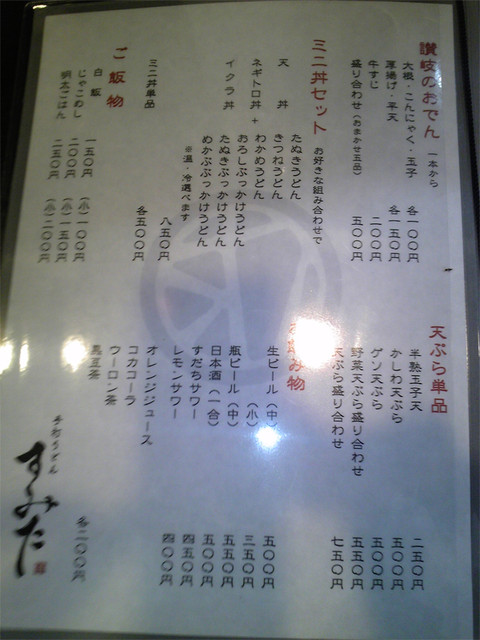 讃岐のおでん 一本から
大根・こんにゃく・玉子 各一〇〇円
厚揚げ・平天 各一五〇円
牛すじ 二〇〇円
盛り合わせ（おまかせ五品） 五〇〇円
ミニ丼セット お好きな組み合わせで
天丼
ネギトロ丼 +
イクラ丼
たぬきうどん
きつねうどん
わかめうどん
おろしぶっかけうどん
たぬきぶっかけうどん
めかぶぶっかけうどん
※温・冷選べます
八五〇円
ミニ丼単品 各五〇〇円
ご飯物
白飯 一五〇円 （小）一〇〇円
じゃこめし 二〇〇円 （小）一五〇円
明太ごはん 二五〇円 （小）二〇〇円
天ぷら単品
半熟玉子天 二五〇円
かしわ天ぷら 五〇〇円
ゲソ天ぷら 五〇〇円
野菜天ぷら盛り合わせ 五五〇円
天ぷら盛り合わせ 七五〇円
み物
生ビール（中） 五〇〇円
（小） 三五〇円
瓶ビール（中） 五五〇円
日本酒（一合） 五〇〇円
すだちサワー 四五〇円
レモンサワー 四〇〇円
オレンジジュース
コカコーラ
ウーロン茶
黒豆茶
各二〇〇円
手打うどん
すみた